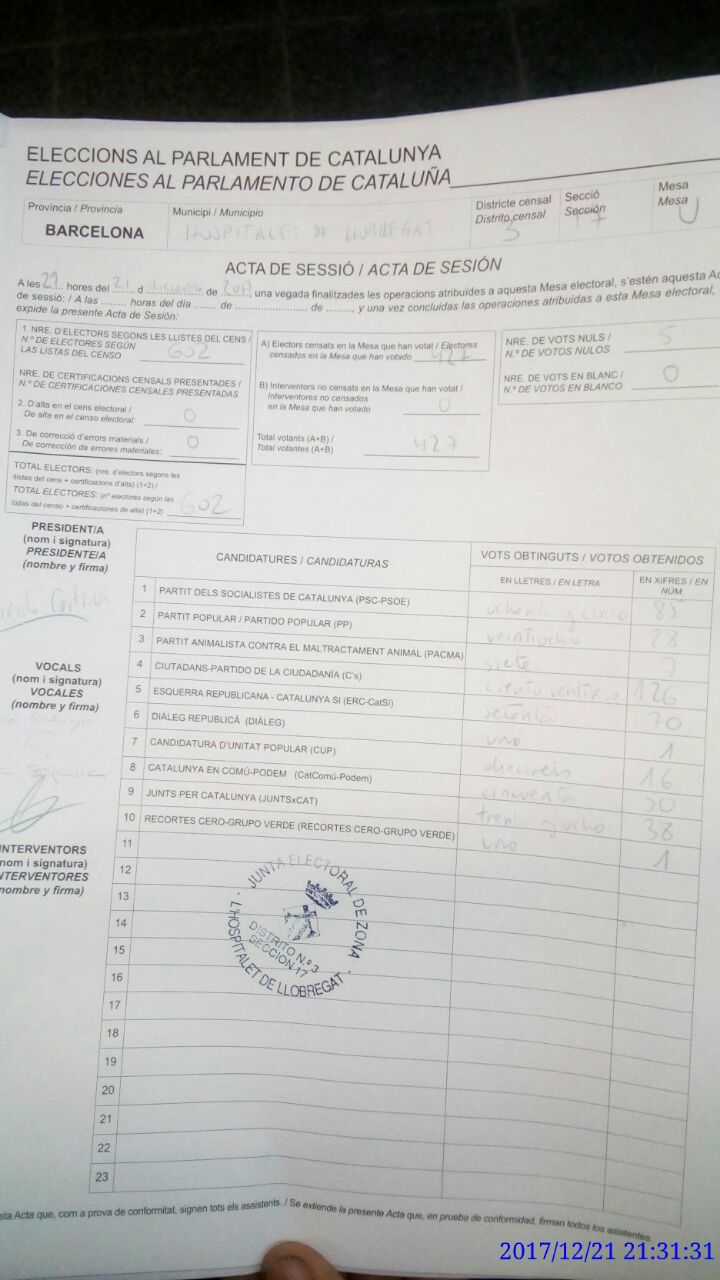 ELECCIONS AL PARLAMENT DE CATALUNYA
ELECCIONES AL PARLAMENTO DE CATALUÑA
Província / Provincia
BARCELONA
Municipi / Municipio
HOSPITALET DE LLOBREGAT
Districte censal
Distrito censal
3
Secció
Sección
17
Mesa
Mesa
U
ACTA DE SESSIÓ / ACTA DE SESIÓN
A les 21 hores del 21 d diciembre de 2017, una vegada finalitzades les operacions atribuïdes a aquesta Mesa electoral, s'estén aquesta Ac
de sessió: / A las ........ horas del día ....... de ..................... de ........, y una vez concluidas las operaciones atribuidas a esta Mesa electoral,
expide la presente Acta de Sesión:
1. NRE. D'ELECTORS SEGONS LES LLISTES DEL CENS /
N.º DE ELECTORES SEGÚN
LAS LISTAS DEL CENSO 602
NRE. DE CERTIFICACIONS CENSALS PRESENTADES /
N.º DE CERTIFICACIONES CENSALES PRESENTADAS
2. D'alta en el cens electoral /
De alta en el censo electoral: 0
3. De correcció d'errors materials /
De corrección de errores materiales: 0
TOTAL ELECTORS: (nre. d'electors segons les
llistes del cens + certificacions d'alta) (1+2) /
TOTAL ELECTORES: (nº electores según las
listas del censo + certificaciones de alta) (1+2) 602
A) Electors censats en la Mesa que han votat / Electores
censados en la Mesa que han votado 427
B) Interventors no censats en la Mesa que han votat /
Interventores no censados
en la Mesa que han votado 0
Total votants (A+B) /
Total votantes (A+B) 427
NRE. DE VOTS NULS /
N.º DE VOTOS NULOS 5
NRE. DE VOTS EN BLANC /
N.º DE VOTOS EN BLANCO 0
PRESIDENT/A
(nom i signatura)
PRESIDENTE/A
(nombre y firma)
VOCALS
(nom i signatura)
VOCALES
(nombre y firma)
INTERVENTORS
(nom i signatura)
INTERVENTORES
(nombre y firma)
CANDIDATURES / CANDIDATURAS
VOTS OBTINGUTS / VOTOS OBTENIDOS
EN LLETRES / EN LETRA
EN XIFRES / EN NÚM.
1 PARTIT DELS SOCIALISTES DE CATALUNYA (PSC-PSOE) ochenta y cinco 85
2 PARTIT POPULAR / PARTIDO POPULAR (PP) veintiocho 28
3 PARTIT ANIMALISTA CONTRA EL MALTRACTAMENT ANIMAL (PACMA) siete 7
4 CIUTADANS-PARTIDO DE LA CIUDADANÍA (C's) ciento ventiseis 126
5 ESQUERRA REPUBLICANA - CATALUNYA SI (ERC-CatSí) setenta 70
6 DIÀLEG REPUBLICÀ (DIÀLEG) uno 1
7 CANDIDATURA D'UNITAT POPULAR (CUP) dieciseis 16
8 CATALUNYA EN COMÚ-PODEM (CatComú-Podem) cincuenta 50
9 JUNTS PER CATALUNYA (JUNTSxCAT) treinta y ocho 38
10 RECORTES CERO-GRUPO VERDE (RECORTES CERO-GRUPO VERDE) uno 1
11
12
13
14
15
16
17
18
19
20
21
22
23
JUNTA ELECTORAL DE ZONA
DISTRITO N.º 3
SECCION-17
L'HOSPITALET DE LLOBREGAT
sta Acta que, com a prova de conformitat, signen tots els assistents. / Se extiende la presente Acta que, en prueba de conformidad, firman todos los asistentes.
2017/12/21 21:31:31